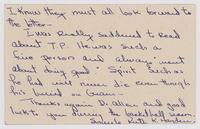 I know they must all look forward to
the letter—
I was really saddened to read
about T.P. He was such a
fine person and always "went
about doing good" - Spirit such as
he had will never die even though
his buried on Guam—
Thanks again Dr. Allen and good
luck to you during the basketball season.
Sincerely Ruth K.